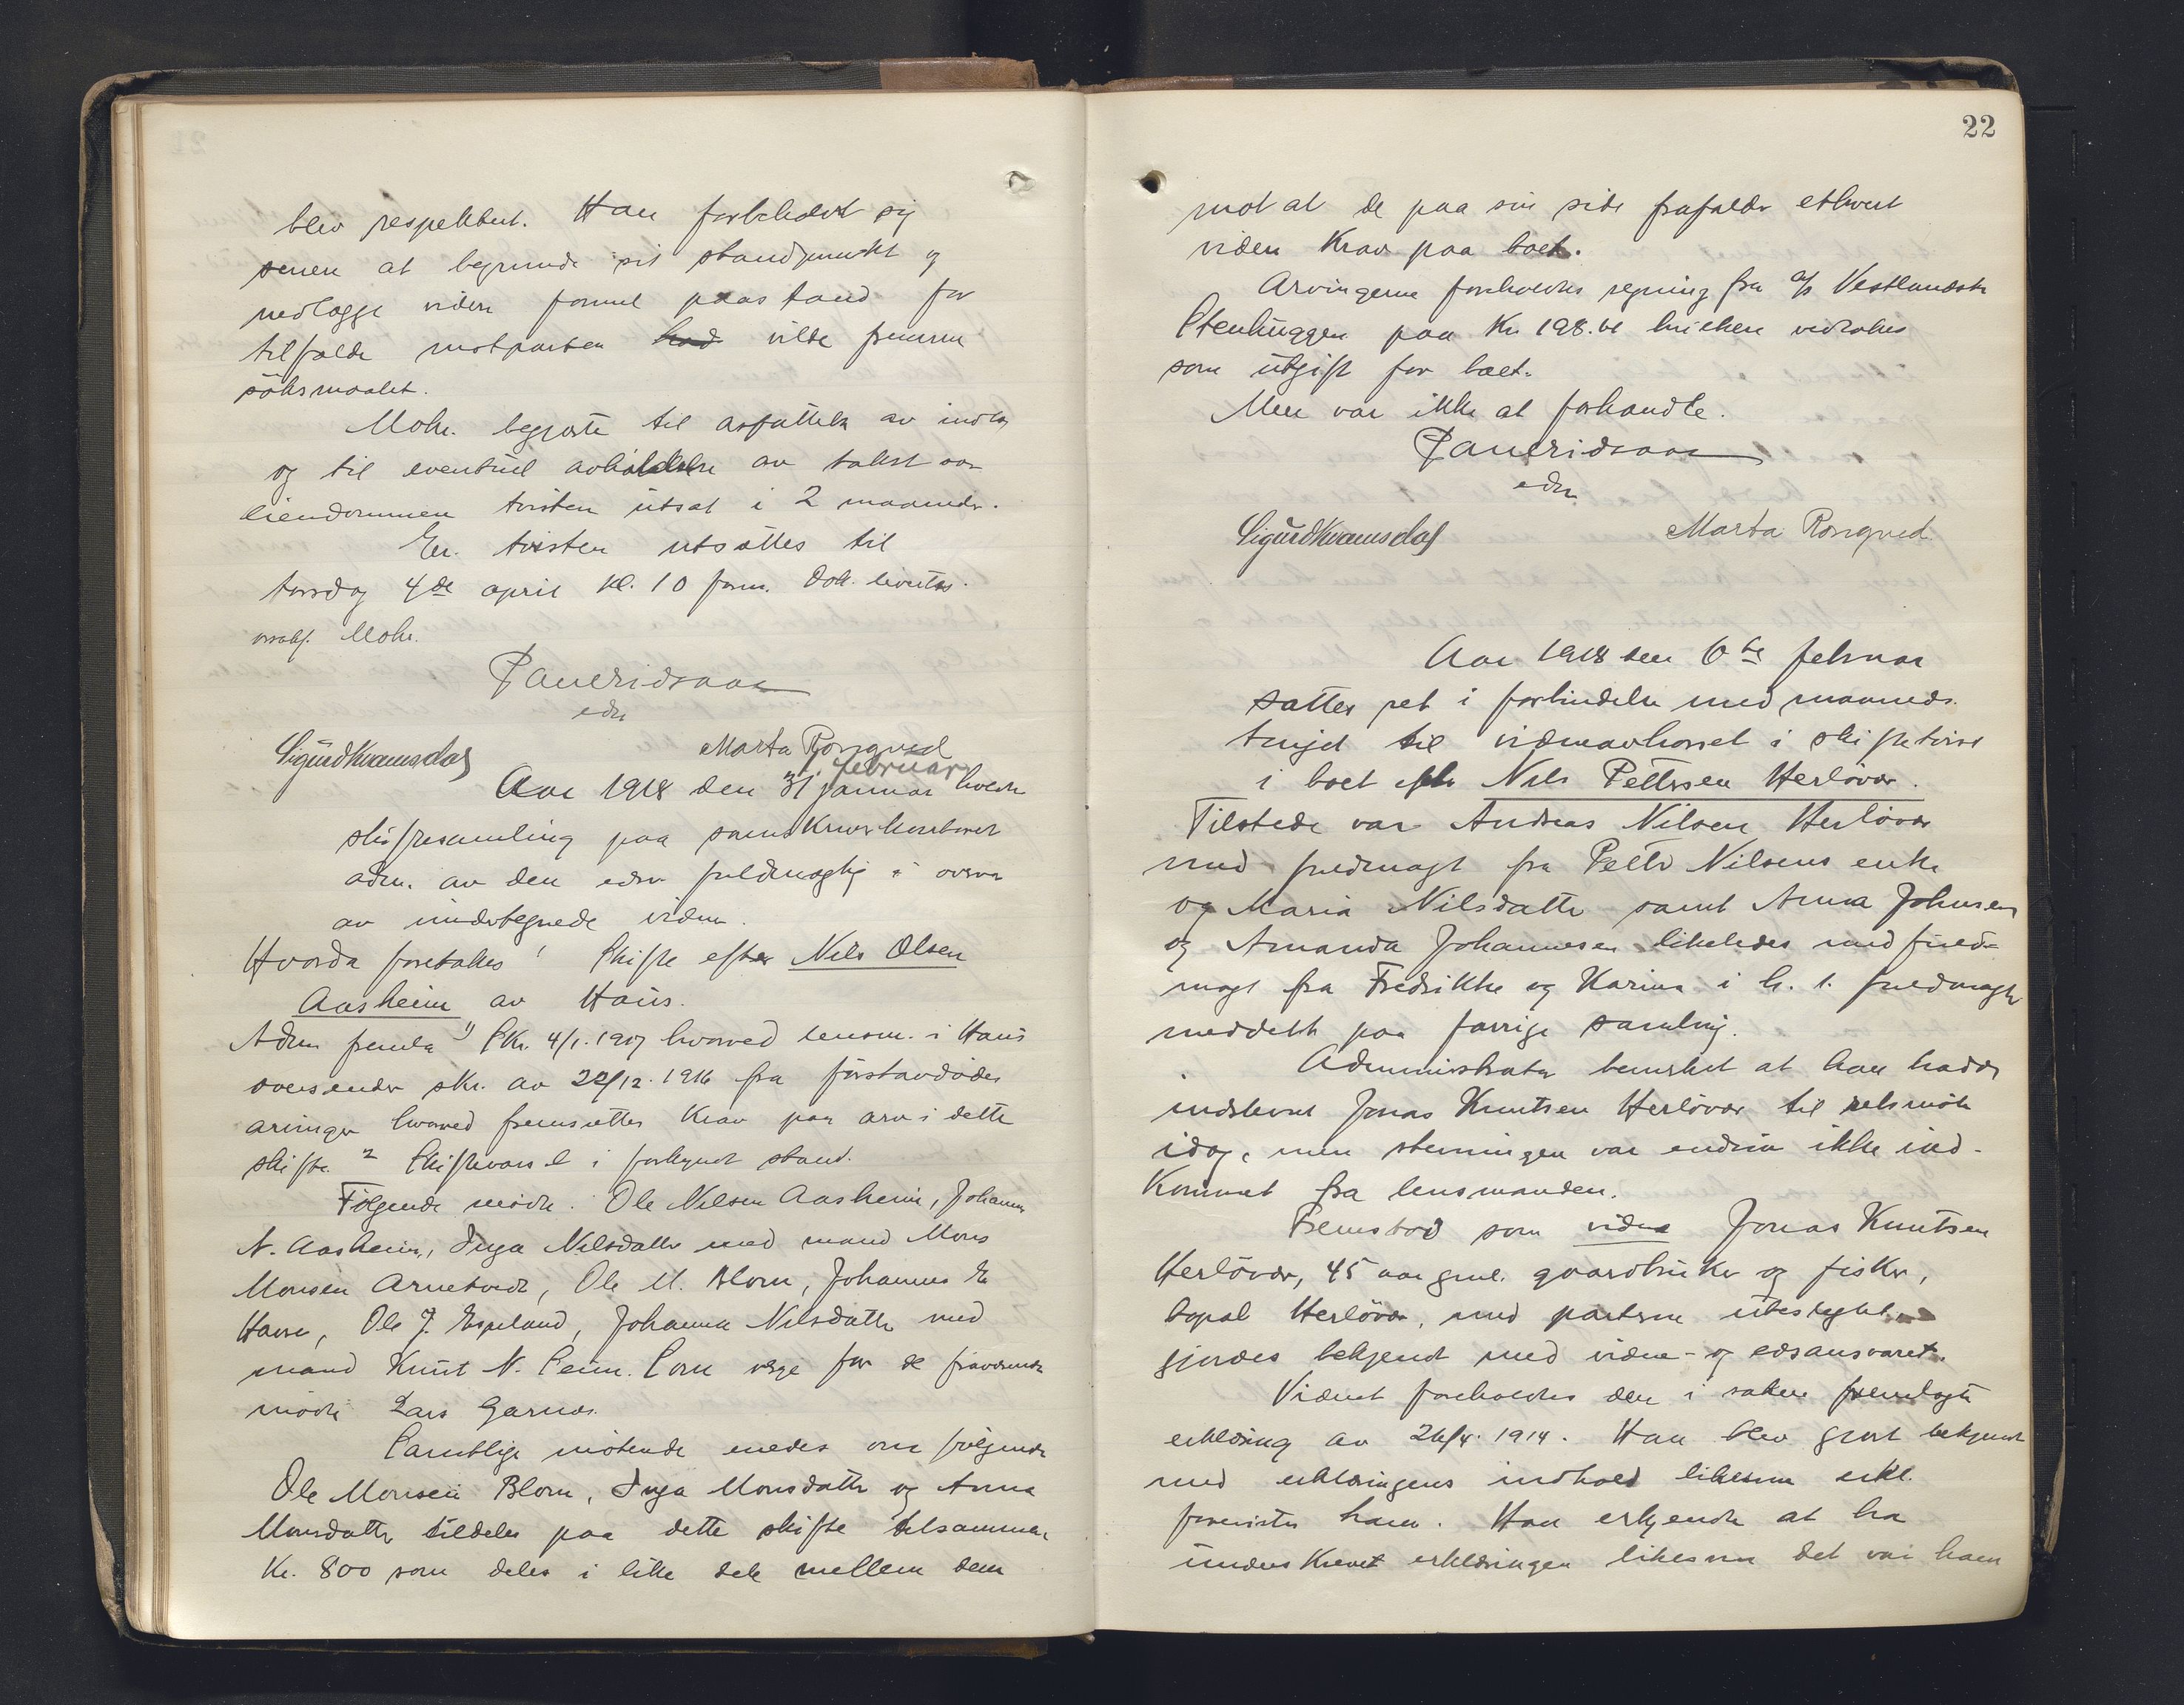 blev respektert. Han forbeholdt sig
senere at begrunde sit standpunkt og
nedlægge videre formel paastand for
tilfælde motparten had vilde fremme
söksmaalet.
Mohr. begjærte til avfattelse av indlæg
og til eventuel avholdelse av takst over
eiendommen tvisten utsat i 2 maaneder.
Er. tvisten utsættes til
torsdag 4de april kl. 10 form. Dok. leveres
Mohr.
edsv
Sigurd Kvamsdal Marta Rongved
februar
Aar 1918 den 31 januar holdtes
skiftesamling paa sorenskriverkontoret
adm. av den edsv fuldmægtig i overvær
av undertegnede vidner.
Hvorda foretokes! Skifte efter Nils Olsen
Aasheim av Haus.
Adm fremla 1) Skr. 4/1. 1917 hvorved lensm. i Haus
oversender skr. av 22/12. 1916 fra förstavdödes
arvinger hvorved fremsættes krav paa arv i dette
skifte. 2 Skiftevarsel i forkyndt stand.
Fölgende mödte: Ole Nilsen Aasheim, Johannes
N. Aasheim, Inga Nilsdatter med mand Mons
Monsen Arnetvedt, Ole M. Blom, Johannes E
Ole J. Espeland, Johanna Nilsdatter med
mand Knut N. Seim. Som verge for de fraværende
mödte Lars Garnes.
Samtlige mötende enedes om fölgende
Ole Monsen Blom, Inga Monsdatter og Anna
Monsdatter tildeles paa dette skifte tilsammen
Kr. 800 som deles i like dele mellem dem
22
mot at de paa sin side frafalder ethvert
videre krav paa boet.
Arvingerne foreholdtes regning fra a/s Vestlandske
Stenhuggeri paa Kr 198. hvilken vedtokes
som utgift for boet.
Mere var ikke at forhandle.
edsv
Sigurd Kvamsdal Marta Rongved.
Aar 1918 den 6te februar
sattes ret i forbindelse med maaneds
tinget til vidneavhorsel i skiftetvist
i boet efter Nils Pettersen Herlövær.
Tilstede var Andreas Nilsen Herlövær
med fuldmagt fra Petter Nilsens enke
og Maria Nilsdatter samt Anna Johnsen
og Amanda Johannesen likeledes med fuld-
magt fra Fredrikke og Karina i h. t. fuldmagter
meddelt paa forrige samling.
Administrator bemerket at han hadde
indstevnt Jonas Knutsen Herlövær til retsmöte
idag, men stevningen var endnu ikke ind-
kommet fra lensmanden.
Fremstod som vidne Jonas Knutsen
Herlövær, 45 aar gml. gaardbruker og fisker,
bopæl Herlövær, med parterne ubeslegtet.
gjordes bekjendt med vidne- og edsansvaret.
Vidnet foreholdtes den i saken fremlagte
erklæring av 26/4. 1914. Han blev gjort bekjendt
med erklæringens indhold likesom erkl.
forevistes ham. Han erkjendte at ha
underskrevet erklæringen likesom det var ham